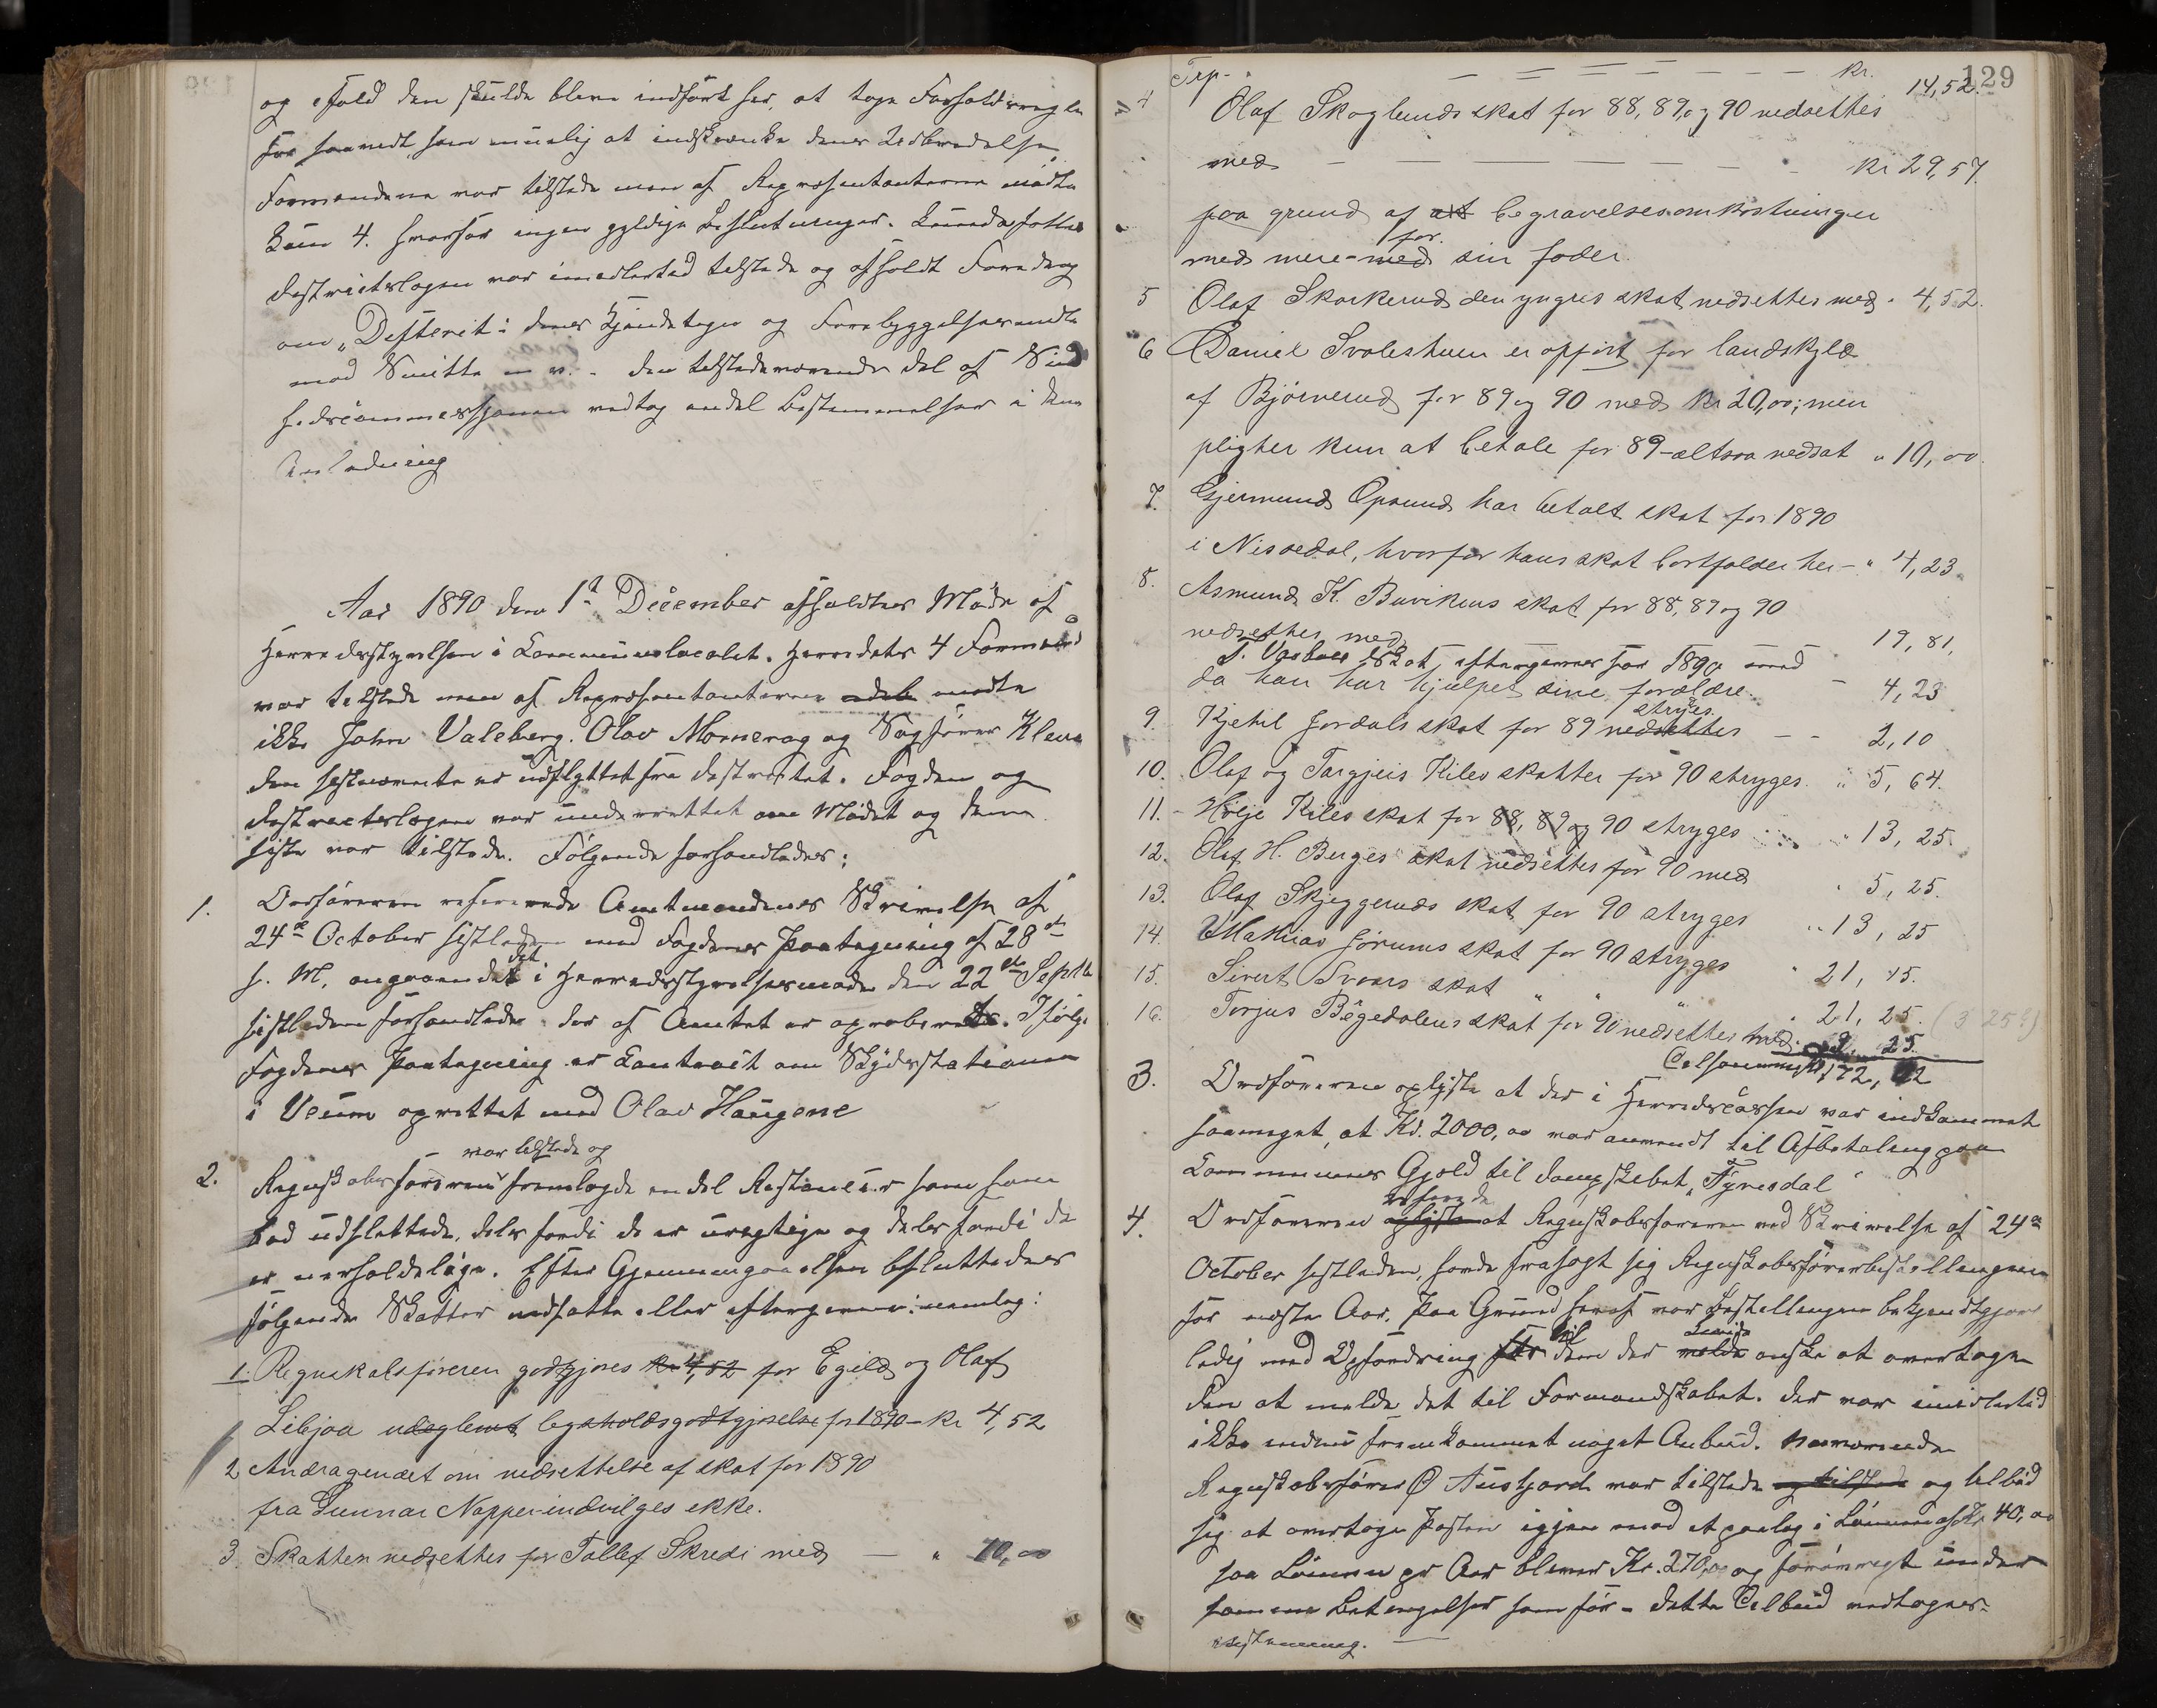 og ifald den skulde bleve indført her, at tage Forholdsregler
for saavidt som muelig at indskrænke denes Udbredelse,
Formændene var tilstede men af Repræsentanterne mødte
kun 4. hvorfor ingen gyldige Beslutninger kunde fattes
Destrictslægen var imidlertid tilstede og afholdt Foredrag
om „Difterit": denes Kjendetegn og Forebyggelsesmidle
mod Smitte m v. - den tilstedeværende del af Sund
hedscommessjonen vedtog endel Bestemmelser i den
Anledning
Aar 1890 den 1ste December afholdtes Møde af
Herredsstyrelsen i Communelocalet. Herredets 4 Formænd
var tilstede men af Repræsentanterne mødte
ikke John Valeberg. Olav Momerag og Sagfører Kleve
den sistnævnte er udflyttet fra destrictet. Fogden og
destrictslægen var underrettet om Mødet og denne
siste var tilstede. Følgende forhandledes:
1. Ordføreren refererede Amtmandens Skrivelse af
24de October sistleden med Fogdens Paategning af 28de
s. M. angaaende det i Herredsstyrelsesmøde den 22de Septbr
sistleden forhandlede der af Amtet er aproberet. Ifølge
Fogdens Paategning er Contract om Skydsstationen
i Veum oprettet med Olav Haugene
var tilstede og
2. Regnskabsføreren fremlagde en del Restancer som han
bad udslettede, dels fordi de er uregtige og dels fordi de
er uerholdelige. Efter Gjennemgaaelsen besluttedes
følgende Skatter nedsatte eller eftergivne: nemlig:
1. Regnskabsføreren godtgjøres kr 4,52 for Egild og Olaf
Libjaa udeglemt lægsholdsgodtgjørelse for 1890 - Kr 4,52
2 Andragendet om nedsettelse af skat for 1890
fra Gunnar Napper indvilges ikke.
3 Skatten nedsettes for Tallef Skredi med — „ 10,00
129
Trp- — — — — — — kr. 14,52.
4 Olaf Skoglunds skat for 88, 89 og 90 nedsettes
med — — — — — — kr 29,57.
paa grund af at begravelsesomkostninger
for
med mere - med sin fader.
5 Olaf Skarkerud den yngres skat nedsettes med „ 4,52.
6 Daniel Svaleshuen er opført for landskyld
af Bjørnerud for 89 og 90 med Kr 20,00; men
pligter kun at betale for 89 - altsaa nedsat „ 10,00.
7. Gjermund Opsund har betalt skat for 1890
i Nissedal, hvorfor hans skat bortfalder her - „ 4,23.
8. Asmund K. Buvikens skat for 88, 89 og 90
nedsettes med 19,81.
skat eftergives for 1890 med
da han har hjulpet sine forældre. — 4,23
stryges
9. Kjetil Jordals skat for 89 nedsettes — — 2,10
10. Olaf og Targjeis Kiles skatter for 90 stryges. „ 5,64.
11. - Hølje Kiles skat for 88, 89 og 90 stryges „ 13,25.
12. Olaf H. Berges skat nedsettes for 90 med „ 5,25.
13. Olaf Skjeggeruds skat for 90 stryges „ 13,25
14. Mathias Jørums skat for 90 stryges „ 21,15.
15. Sivert Svaars skat „ „ „ „ 21,25. (3 25?)
16. Torjus Bøgedalens skat for 90 nedsettes med. 25
Tilsammen kr 172,
3. Ordføreren oplyste at der i Herredscassen var indkommet
saameget, at Kr. 2000,00 var anvendt til Afbetaling paa
Communens Gjæld til dampskibet „Fyresdal"
4. Ordføreren oplyste at Regnskabsføreren ved Skrivelse af 24de
October sistleden, havde frasagt sig Regnskabsførerbestillingen
for næste Aar. Paa Grund heraf var Bestillingen bekjendtgjort
ledig med Opfordring til dem der ønske at overtage
den at melde det til Formandskabet. Der var imidlertid
ikke endnu fremkommet noget Anbud. Nuværende
Regnskabsfører Ø Austjord var tilstede og tilstede og tilbød
sig at overtage Posten igjen mod et paalæg i Lønnen af Kr 40,00
saa Lønnen pr Aar bliver Kr. 270,00 og forøvrigt under
samme Betingelser som før - dette Tilbud vedtoges